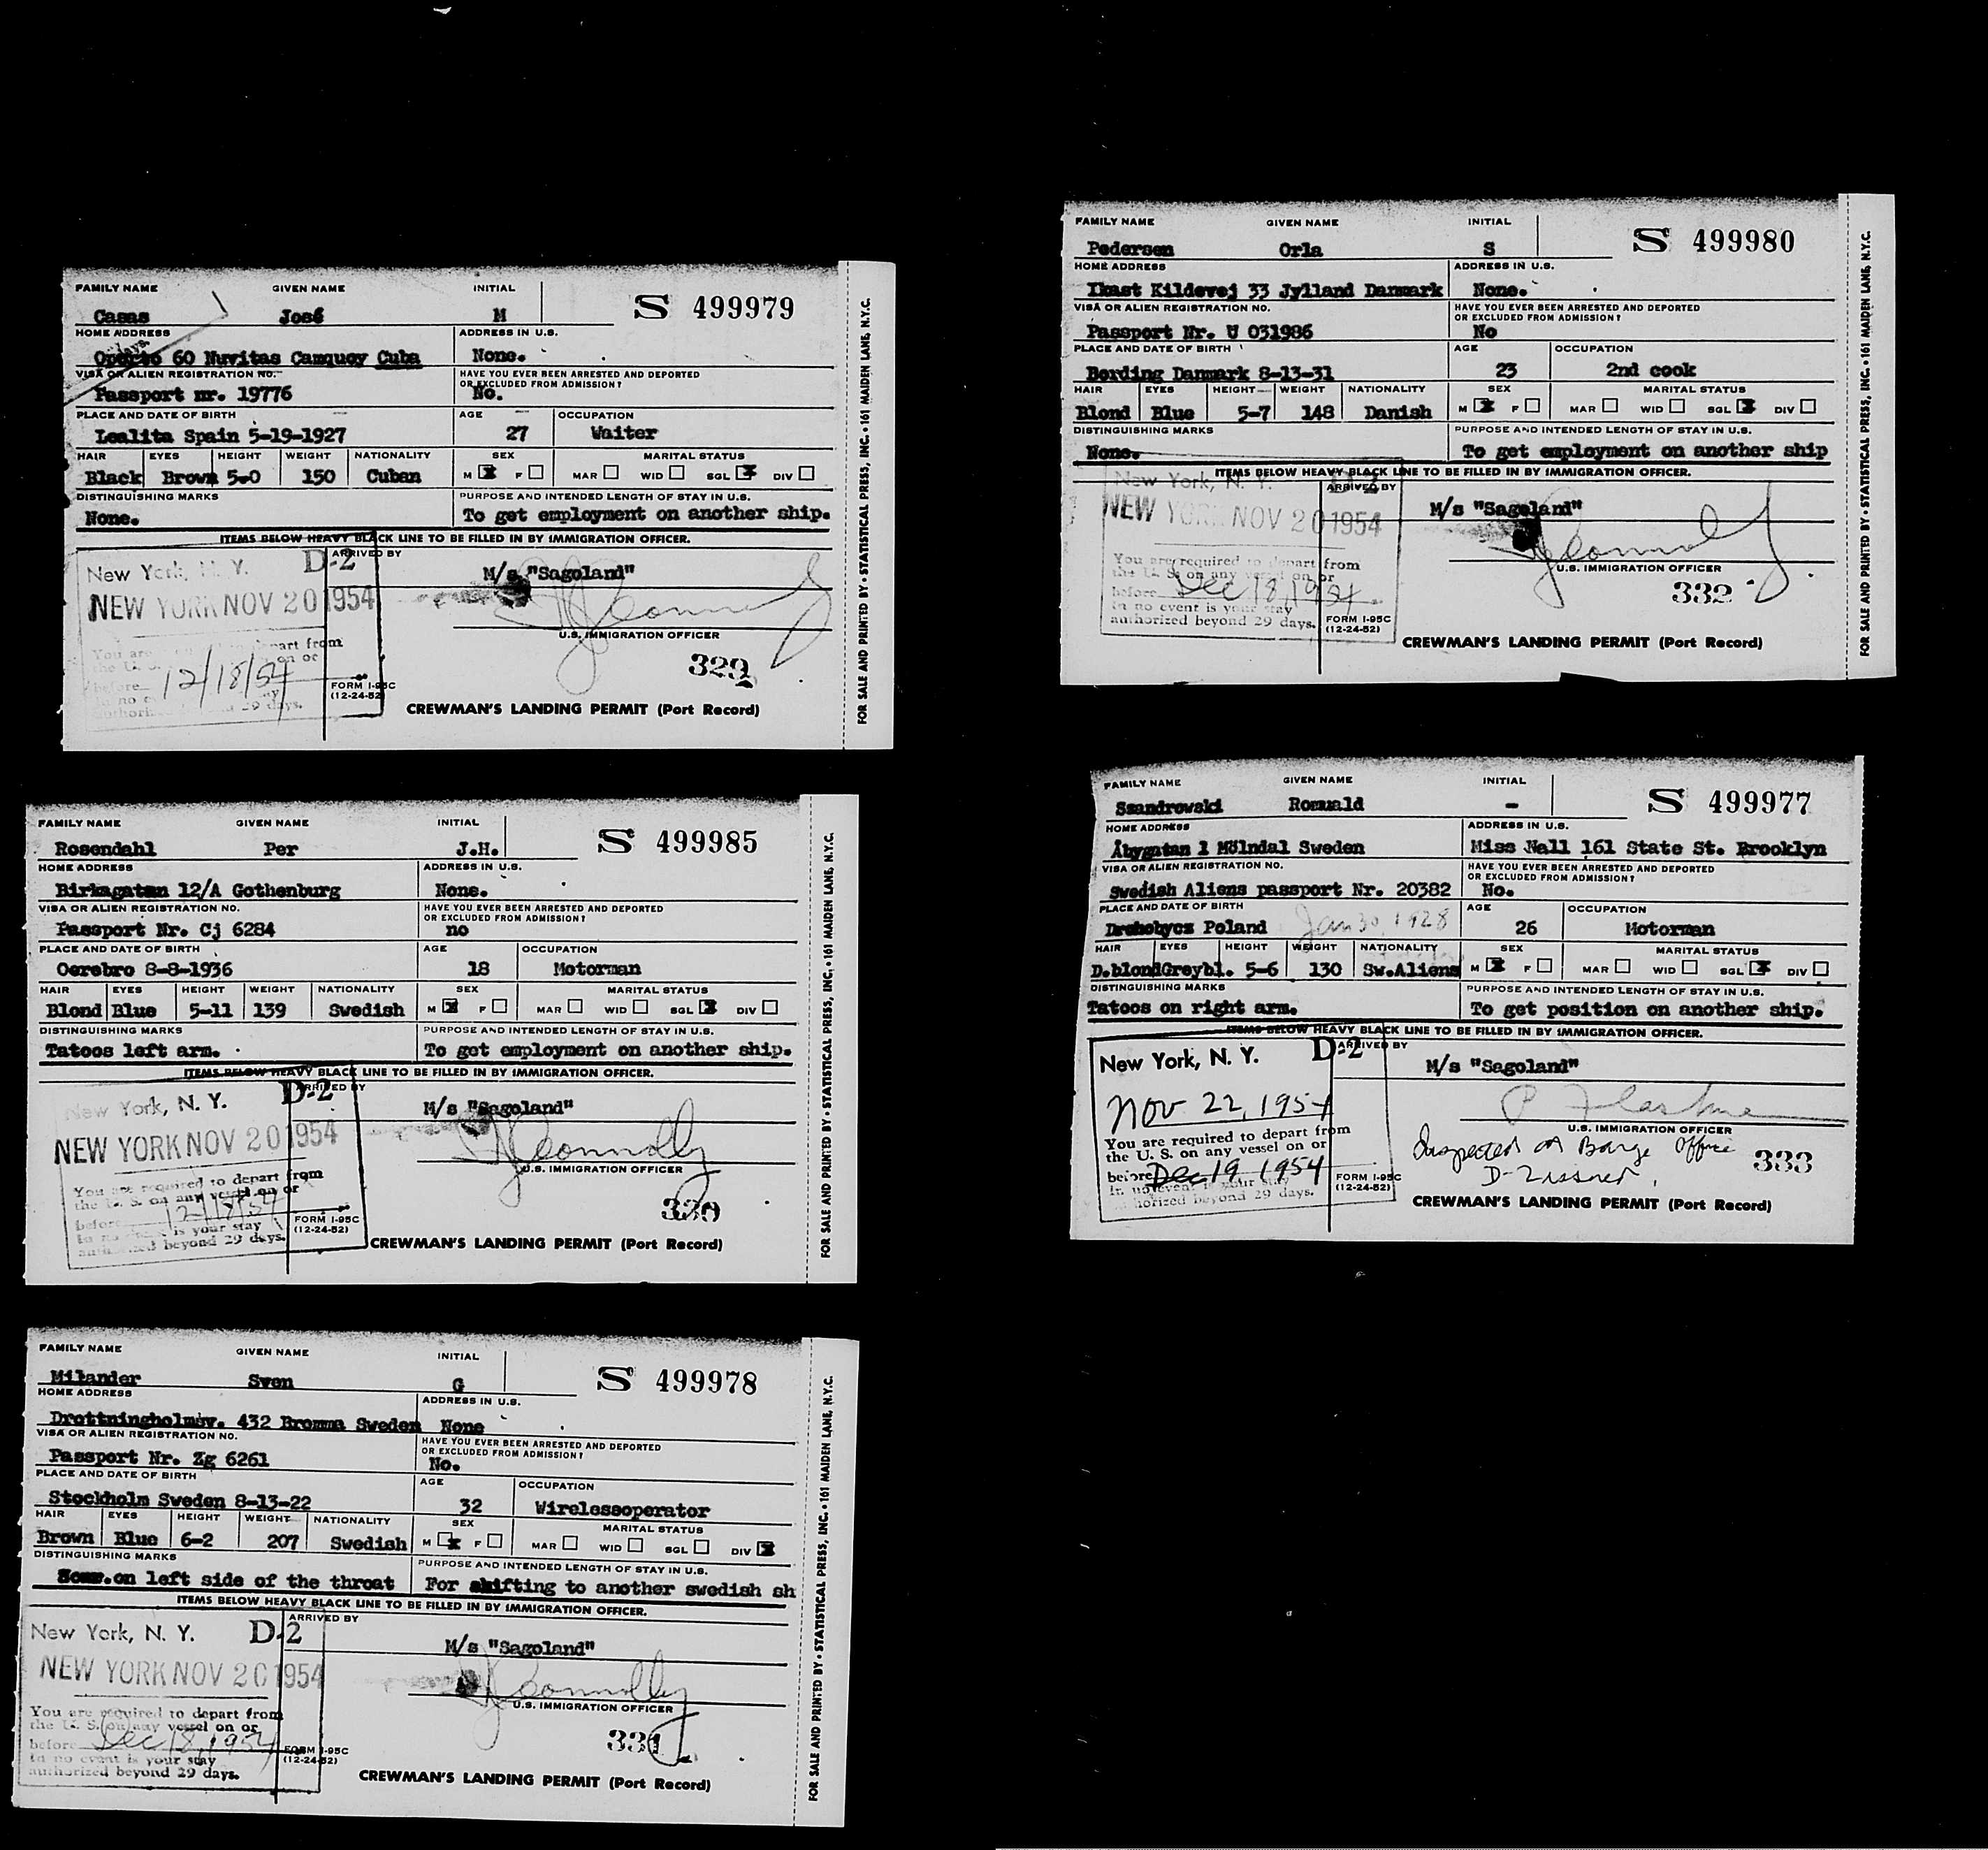 FAMILY NAME GIVEN NAME INITIAL
S 499979
Casas José M
HOME ADDRESS ADDRESS IN U.S.
60 Nuvitas Camquey Cuba None.
VISA OR ALIEN REGISTRATION NO. HAVE YOU EVER BEEN ARRESTED AND DEPORTED
OR EXCLUDED FROM ADMISSION?
Passport nr. 19776 No.
PLACE AND DATE OF BIRTH AGE OCCUPATION
Lealita Spain 5-19-1927 27 Waiter
HAIR EYES HEIGHT WEIGHT NATIONALITY SEX MARITAL STATUS
Black Brown 5-0 150 Cuban M X F MAR WID SGL X DIV
DISTINGUISHING MARKS PURPOSE AND INTENDED LENGTH OF STAY IN U.S.
None. To get employment on another ship.
ITEMS BELOW HEAVY BLACK LINE TO BE FILLED IN BY IMMIGRATION OFFICER.
New York, N. Y. D-2 ARRIVED BY
M/s "Sagoland"
NEW YORK NOV 20 1954
U.S. IMMIGRATION OFFICER
You are part from
the U. S. on or
before 12/18/54
329
FORM I-95C
(12-24-52)
in no
29 days.
CREWMAN'S LANDING PERMIT (Port Record)
FOR SALE AND PRINTED BY • STATISTICAL PRESS, INC. • 161 MAIDEN LANE, N.Y.C.
FAMILY NAME GIVEN NAME INITIAL
S 499985
Rosendahl Per J.H.
HOME ADDRESS ADDRESS IN U.S.
Birkagatan 12/A Gothenburg None.
VISA OR ALIEN REGISTRATION NO. HAVE YOU EVER BEEN ARRESTED AND DEPORTED
OR EXCLUDED FROM ADMISSION?
Passport Nr. Cj 6284 no
PLACE AND DATE OF BIRTH AGE OCCUPATION
Oerebro 8-8-1936 18 Motorman
HAIR EYES HEIGHT WEIGHT NATIONALITY SEX MARITAL STATUS
Blond Blue 5-11 139 Swedish M X F MAR WID SGL X DIV
DISTINGUISHING MARKS PURPOSE AND INTENDED LENGTH OF STAY IN U.S.
Tatoos left arm. To get employment on another ship.
ITEMS BELOW HEAVY BLACK LINE TO BE FILLED IN BY IMMIGRATION OFFICER.
New York, N. Y. D-2 ARRIVED BY
M/s "Sagoland"
NEW YORK NOV 20 1954
J Connolly
U.S. IMMIGRATION OFFICER
You are required to depart from
the U. S. on any vessel on or
before 12/18/54
330
FORM I-95C
(12-24-52)
in no event is your stay
authorized beyond 29 days.
CREWMAN'S LANDING PERMIT (Port Record)
FOR SALE AND PRINTED BY • STATISTICAL PRESS, INC. • 161 MAIDEN LANE, N.Y.C.
FAMILY NAME GIVEN NAME INITIAL
S 499978
Milander Sven G
HOME ADDRESS ADDRESS IN U.S.
Drottningholmsv. 432 Bromma Sweden None
VISA OR ALIEN REGISTRATION NO. HAVE YOU EVER BEEN ARRESTED AND DEPORTED
OR EXCLUDED FROM ADMISSION?
Passport Nr. Zg 6261 No.
PLACE AND DATE OF BIRTH AGE OCCUPATION
Stockholm Sweden 8-13-22 32 Wirelessoperator
HAIR EYES HEIGHT WEIGHT NATIONALITY SEX MARITAL STATUS
Brown Blue 6-2 207 Swedish M X F MAR WID SGL DIV X
DISTINGUISHING MARKS PURPOSE AND INTENDED LENGTH OF STAY IN U.S.
on left side of the throat For shifting to another swedish sh
ITEMS BELOW HEAVY BLACK LINE TO BE FILLED IN BY IMMIGRATION OFFICER.
New York, N. Y. D-2 ARRIVED BY
M/s "Sagoland"
NEW YORK NOV 20 1954
J Connolly
U.S. IMMIGRATION OFFICER
You are required to depart from
the U. S. on any vessel on or
before Dec 18, 1954
331
FORM I-95C
(12-24-52)
in no event is your stay
authorized beyond 29 days.
CREWMAN'S LANDING PERMIT (Port Record)
FOR SALE AND PRINTED BY • STATISTICAL PRESS, INC. • 161 MAIDEN LANE, N.Y.C.
FAMILY NAME GIVEN NAME INITIAL
S 499980
Pedersen Orla S
HOME ADDRESS ADDRESS IN U.S.
Ikast Kildevej 33 Jylland Danmark None.
VISA OR ALIEN REGISTRATION NO. HAVE YOU EVER BEEN ARRESTED AND DEPORTED
OR EXCLUDED FROM ADMISSION?
Passport Nr. U 031986 No
PLACE AND DATE OF BIRTH AGE OCCUPATION
Bording Danmark 8-13-31 23 2nd cook
HAIR EYES HEIGHT WEIGHT NATIONALITY SEX MARITAL STATUS
Blond Blue 5-7 148 Danish M X F MAR WID SGL X DIV
DISTINGUISHING MARKS PURPOSE AND INTENDED LENGTH OF STAY IN U.S.
None. To get employment on another ship
ITEMS BELOW HEAVY BLACK LINE TO BE FILLED IN BY IMMIGRATION OFFICER.
New York, N. Y. D-2 ARRIVED BY
M/s "Sagoland"
NEW YORK NOV 20 1954
J Connolly
U.S. IMMIGRATION OFFICER
You are required to depart from
the U. S. on any vessel on or
before Dec 18, 1954
332
in no event is your stay
authorized beyond 29 days.
FORM I-95C
(12-24-52)
CREWMAN'S LANDING PERMIT (Port Record)
FOR SALE AND PRINTED BY • STATISTICAL PRESS, INC. • 161 MAIDEN LANE, N.Y.C.
FAMILY NAME GIVEN NAME INITIAL
S 499977
Szandrowski Romuald -
HOME ADDRESS ADDRESS IN U.S.
Åbygatan 1 Mölndal Sweden Miss Nall 161 State St. Brooklyn
VISA OR ALIEN REGISTRATION NO. HAVE YOU EVER BEEN ARRESTED AND DEPORTED
OR EXCLUDED FROM ADMISSION?
Swedish Aliens passport Nr. 20382 No.
PLACE AND DATE OF BIRTH AGE OCCUPATION
Drohobycz Poland Jan 30, 1928 26 Motorman
HAIR EYES HEIGHT WEIGHT NATIONALITY SEX MARITAL STATUS
D.blond Greybl. 5-6 130 Sw.Aliens M X F MAR WID SGL X DIV
DISTINGUISHING MARKS PURPOSE AND INTENDED LENGTH OF STAY IN U.S.
Tatoos on right arm. To get position on another ship.
ITEMS BELOW HEAVY BLACK LINE TO BE FILLED IN BY IMMIGRATION OFFICER.
New York, N. Y. D-2 ARRIVED BY
M/s "Sagoland"
Nov 22, 1954
U.S. IMMIGRATION OFFICER
You are required to depart from
the U. S. on any vessel on or
before Dec 19 1954
Inspected at Barge Office
D-2 issued.
333
FORM I-95C
(12-24-52)
in no event is your stay
authorized beyond 29 days.
CREWMAN'S LANDING PERMIT (Port Record)
FOR SALE AND PRINTED BY • STATISTICAL PRESS, INC. • 161 MAIDEN LANE, N.Y.C.